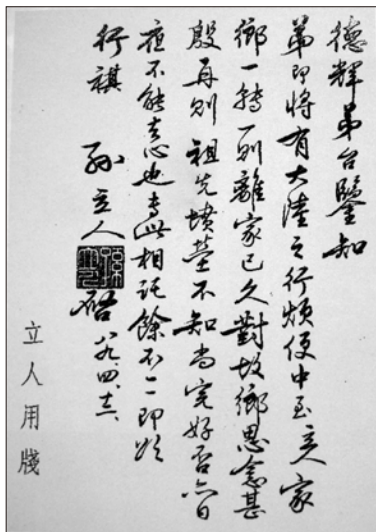 德輝弟台鑒知
弟即將有大陸之行煩便中至立人家
鄉一轉一則離家已久對故鄉思念甚
殷再則祖先墳塋不知尚完好否日
夜不能去心也專此相託餘不一即頌
行祺 孫立人 啓 八九、四、
立人用牋